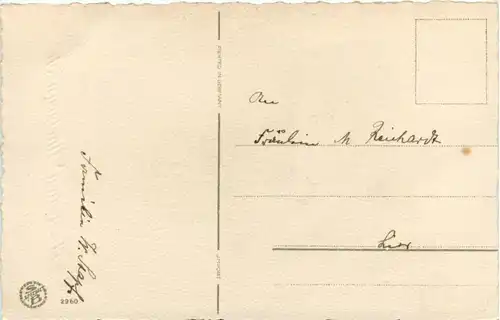 An
Fräulein M Reichardt
hier
Familie
PRINTED IN GERMANY
2260